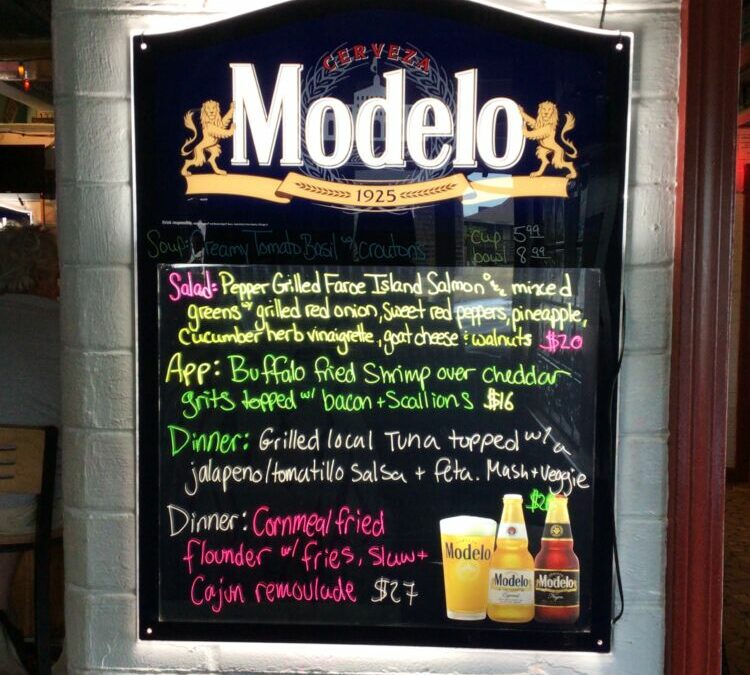 CERVEZA
Modelo
1925
Soup: Creamy Tomato Basil w/ croutons cup 5.99
bowl 8.99
Salad: Pepper Grilled Faroe Island Salmon on mixed
greens w/ grilled red onion, sweet red peppers, pineapple,
cucumber herb vinaigrette, goat cheese & walnuts $20
App: Buffalo fried Shrimp over cheddar
grits topped w/ bacon + Scallions $16
Dinner: Grilled local Tuna topped w/ a
jalapeno/tomatillo Salsa + feta. Mash + Veggie
Dinner: Cornmeal fried
flounder w/ fries, Slaw +
Cajun remoulade $27
Modelo
Modelo
Especial
Modelo
Negra